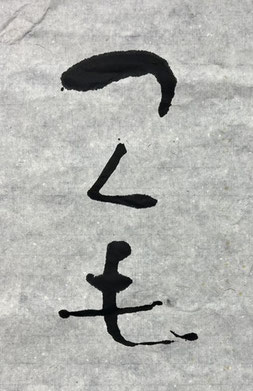 つくも